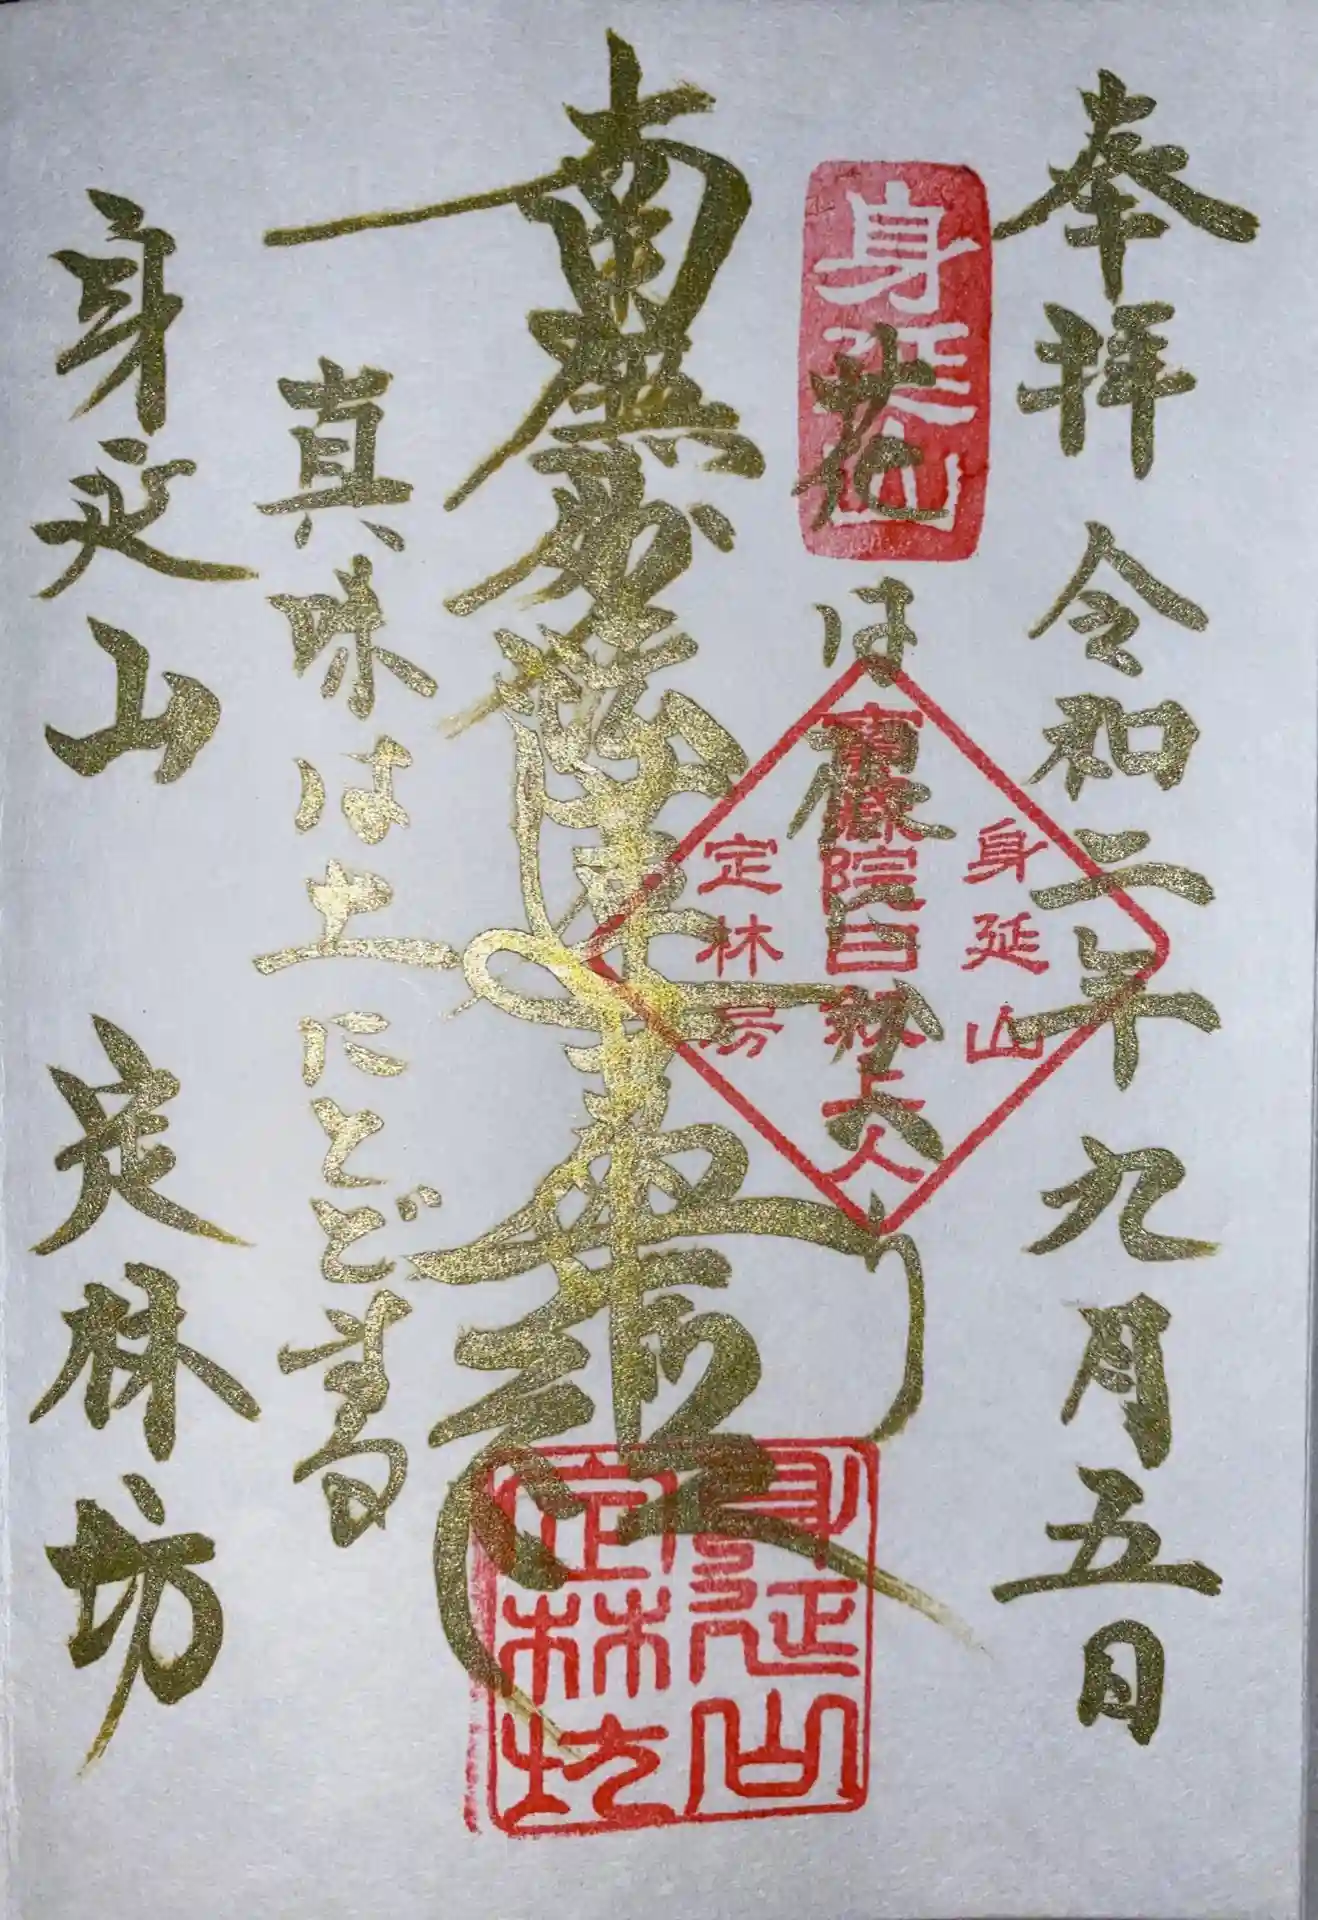 奉拝 令和二年九月五日
身延山
花は根にかへり
南無妙法蓮華経
真味は土にとどまる
身延山 定林坊
身延山
院日
上人
定林房
身延山
定林坊